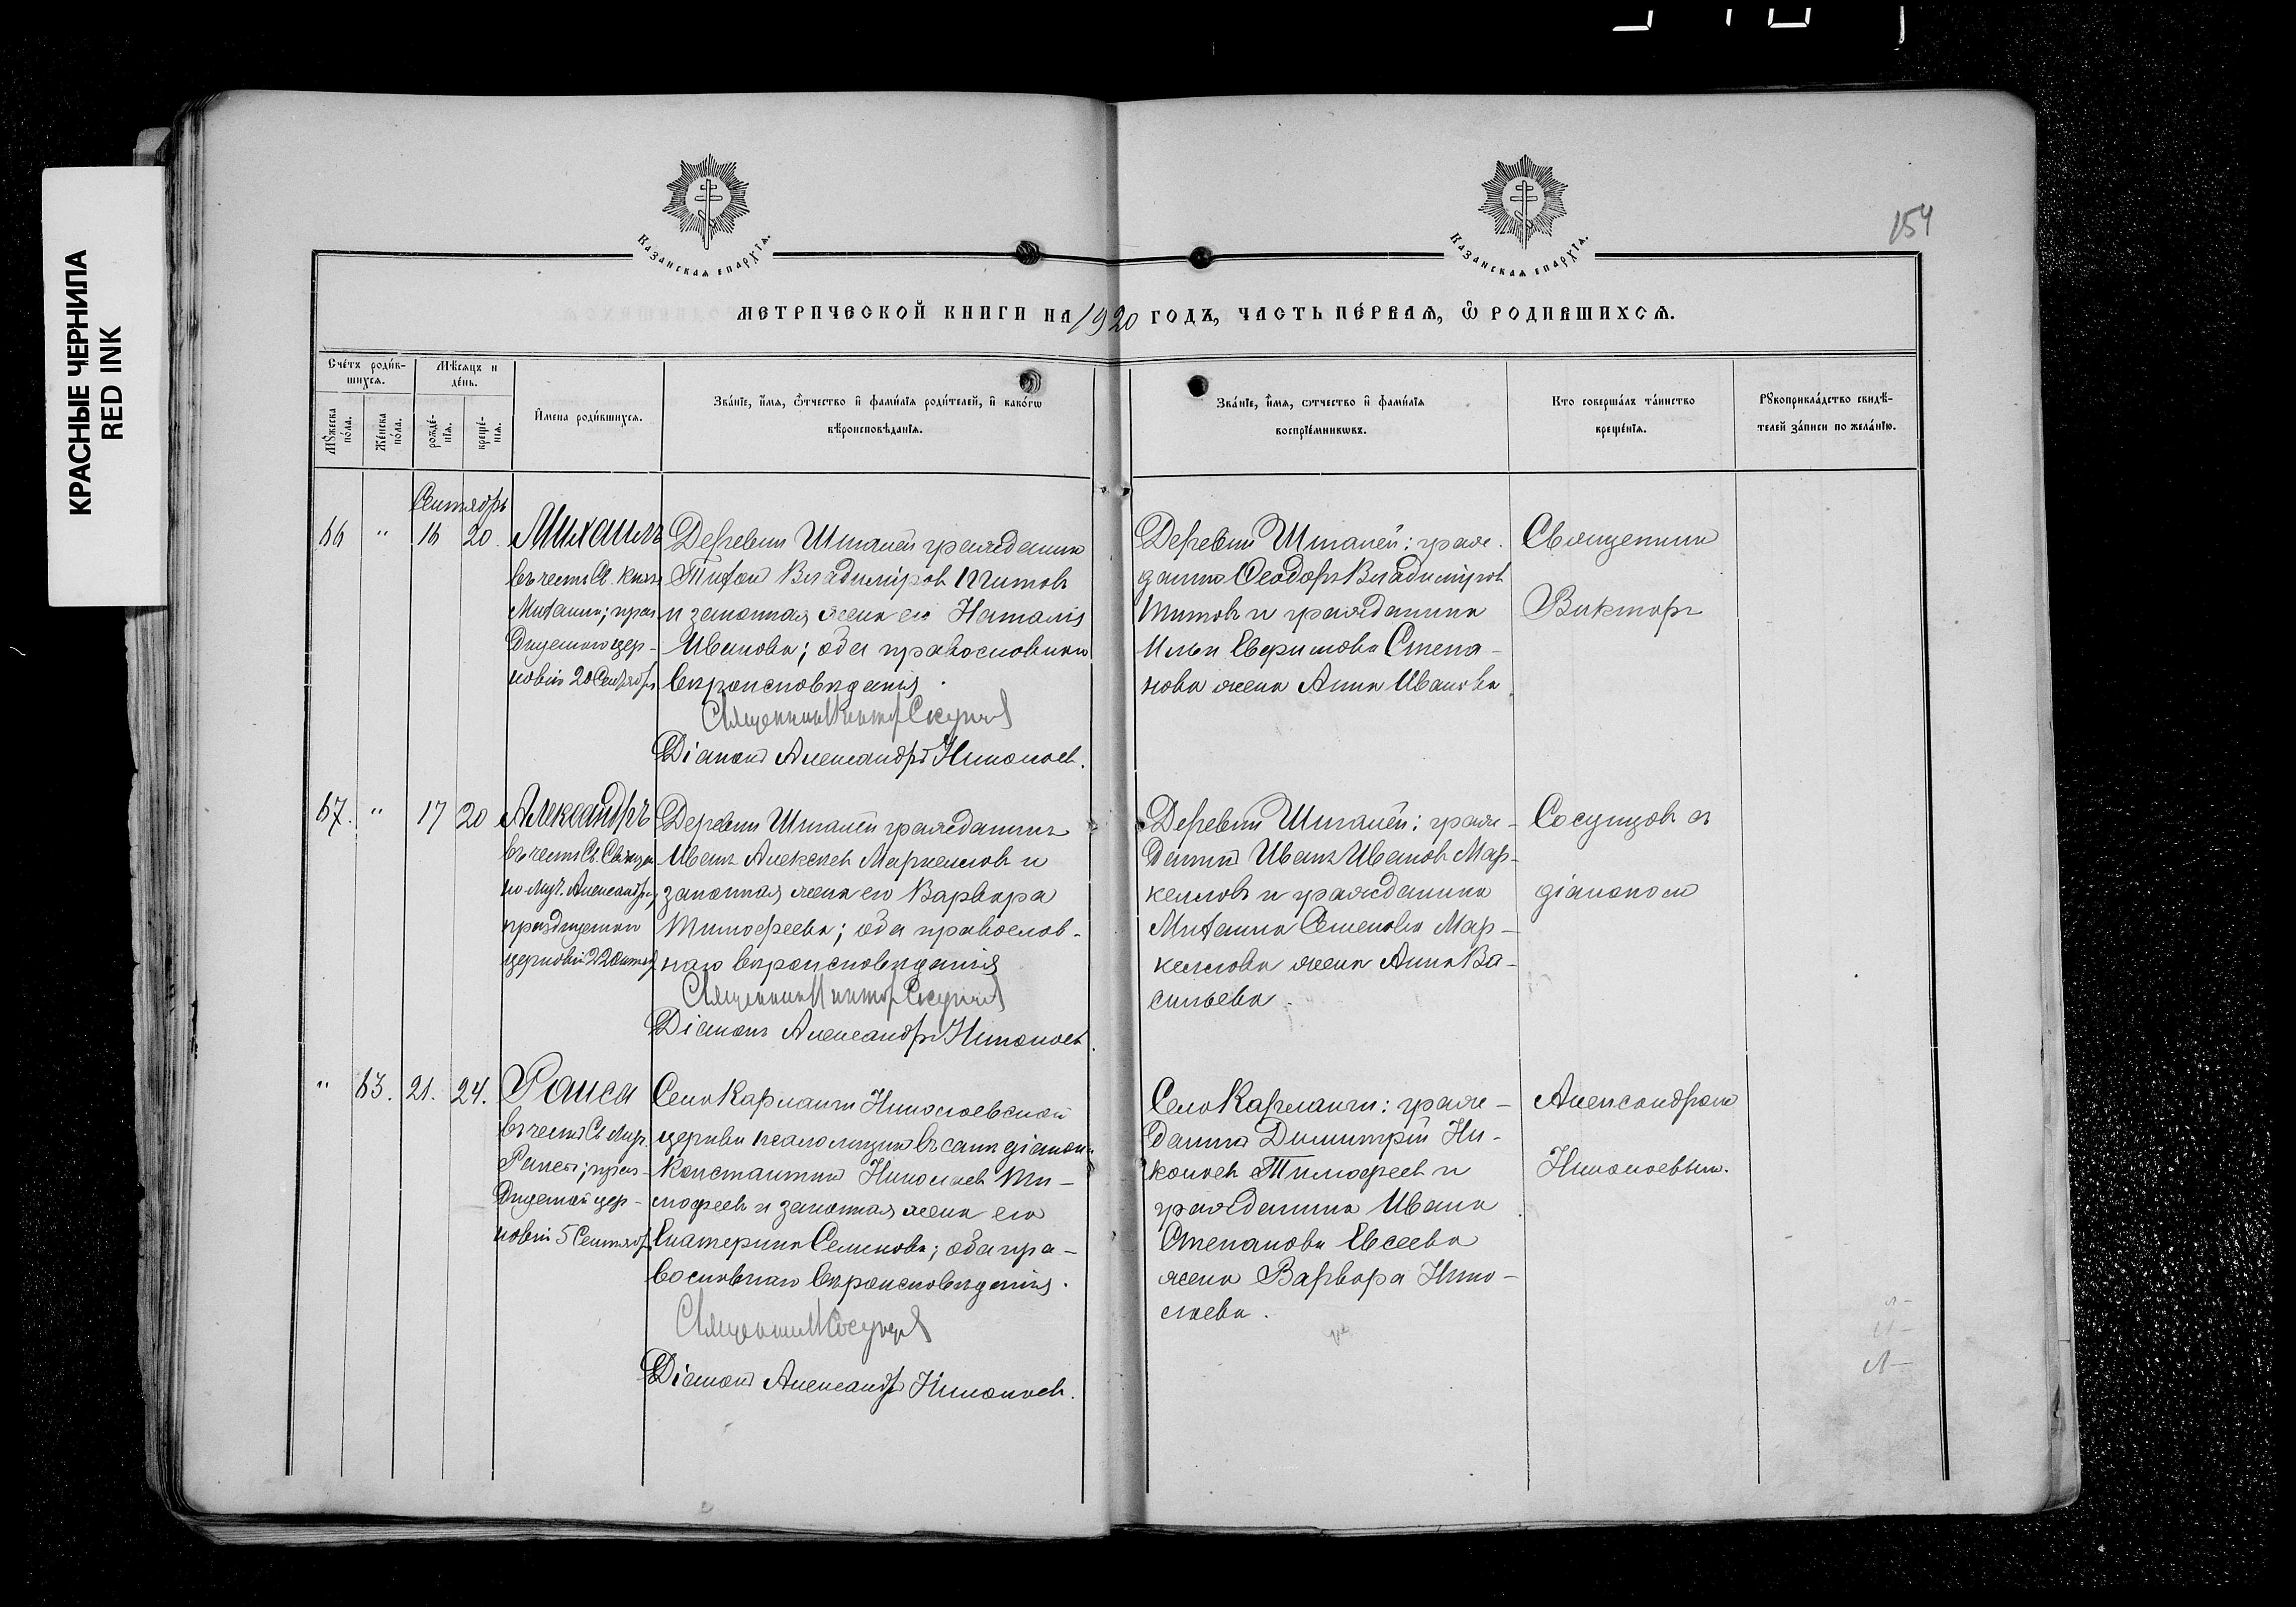 КРАСНЫЕ ЧЕРНИЛА
RED INK
154
Казанская епархїя.
Казанская епархїя.
МЕТРИЧЕСКОЙ КНИГИ НА 1920 ГОДЪ, ЧАСТЬ ПЕ́РВАЯ, Ѿ РОДИВШИХСЯ.
Сче́тъ роди́в-
шихся.
Мѣ́сяцъ и
де́нь.
Мꙋ́жеска
пола.
Же́нска
по́ла.
рожде́-
нїя.
креще́-
нїя.
И҆мена роди́вшихся.
Зва́нїе, и҆́мя, ѻ҆́тчество и҆ фами́лїя роди́телей, и҆ како́гѡ
вѣроисповѣ́данїя.
Зва́нїе, и҆́мя, ѻтчество и҆ фами́лїя
воспрїе́мникѡвъ.
Кто соверша́лъ та́инство
креще́нїя.
Рꙋкоприкла́дство свидѣ́-
телей за́писи по жела́нїю.
Сентябрь
66 " 16 20. Михаилъ
въ честь Св. Князя
Михаила; праз
днуемаго цер-
ковію 20 Сентября
Деревни Шигалей гражданинъ
Тихон Владиміровъ Титовъ
и законная жена его Наталія
Иванова; оба православнаго
вѣроисповѣданія.
Священникъ Виктор
Діаконъ Александръ Николаев.
Деревни Шигалей: граж-
данинъ Ѳеодоръ Владиміров
Титовъ и гражданина
Ильи Степа-
нова жена Анна Иванова.
Священник
Викторъ
67. " 17 20 Александръ
въ честь Св. Священ-
но Муч. Александра,
празднуемаго
церковію 22 Октяб
Деревни Шигалей гражданинъ
Иванъ Алексѣев Маркеловъ и
законная жена его Варвара
Тимофеева; оба православ-
наго вѣроисповѣданія
Священникъ Виктор
Діаконъ Александръ Николаев.
Деревни Шигалей: граж-
данинъ Иванъ Иванов Мар-
келловъ и гражданина
Михаила Семенова Мар-
келлова жена Анна Ва-
сильева.
съ
діаконом
" 63. 21. 24. Раиса
въ честь Св. Муч.
Раисы; праз-
днуемой цер-
ковію 5 Сентября
Село Кармалы Николаевской
церкви псаломщикъ въ санѣ діакона
Константинъ Николаев Ти-
мофеев и законная жена его
Екатерина Семенова; оба пра-
вославнаго вѣроисповѣданія.
Священник
Діаконъ Александръ Николаев.
Село Кармалы: граж-
данинъ Димитрій Ни-
колаев Тимофеев и
гражданина Ивана
Степанова Евсеева
жена Варвара Нико-
лаева.
Александромъ
Николаевым.